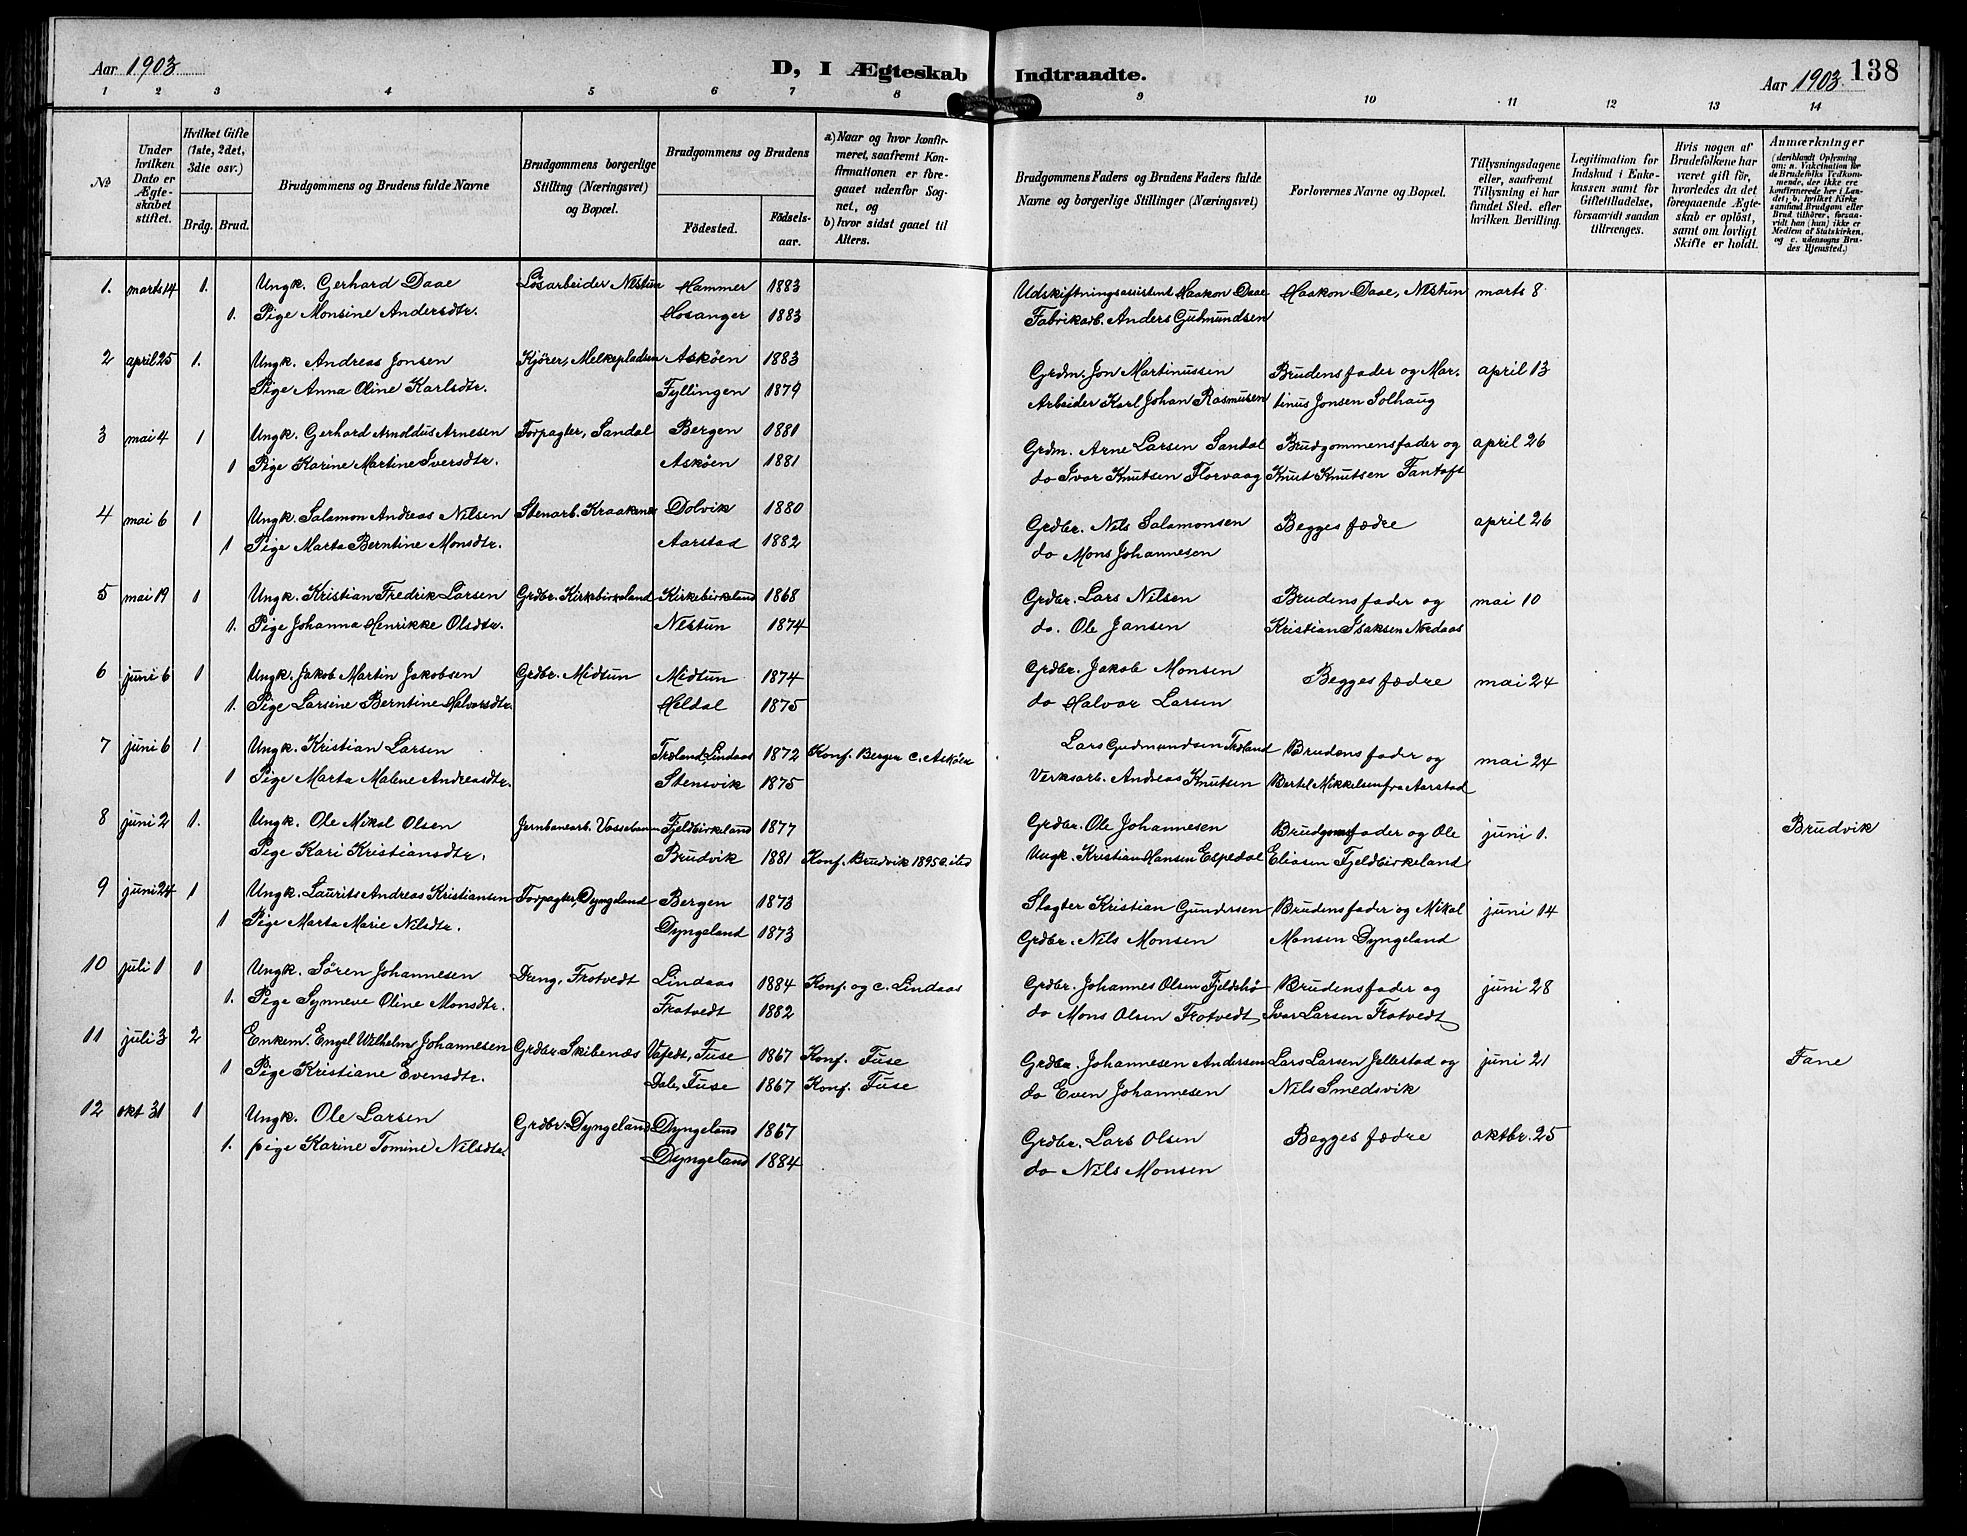 Aar 1903
D, I Ægteskab Indtraadte.
Aar 1903. 138
1 2 3 4 5 6 7 8 9 10 11 12 13 14
№
Under hvilken Dato er Ægteskabet stiftet.
Hvilket Gifte (1ste, 2det, 3die osv.)
Brdg. Brud.
Brudgommens og Brudens fulde Navne
Brudgommens borgerlige Stilling (Næringsvei) og Bopæl.
Brudgommens og Brudens
Födested.
Födselsaar.
a) Naar og hvor konfirmeret, saafremt Konfirmationen er foregaaet udenfor Sognet, og
b) hvor sidst gaaet til Alters.
Brudgommens Faders og Brudens Faders fulde Navne og borgerlige Stillinger (Næringsvei)
Forlovernes Navne og Bopæl.
Tillysningsdagene eller, saafremt Tillysning ei har fundet Sted, efter hvilken Bevilling.
Legitimation for Indskud i Enkekassen samt for Giftetilladelse, forsaavidt saadan tiltrænges.
Hvis nogen af Brudefolkene har været gift för, hvorledes da det foregaaende Ægteskab er oplöst, samt om lovligt Skifte er holdt.
Anmærkninger
(deriblandt Oplysning om: a. Vakcination for de Brudefolks Vedkommende, der ikke ere konfirmerede her i Landet; b. hvilket Kirkesamfund Brudgom eller Brud tilhörer, forsaavidt han (hun) ikke er Medlem af Statskirken, og c. udensogns Brudes Hjemsted.)
1. marts 14 1. Ungk. Gerhard Daae Løsarbeider Nestun Hammer 1883 Udskiftningsassistent Haakon Daae Haakon Daae, Nestun marts 8
1. Pige Monsine Andersdtr. Hosanger 1883 Fabrikarb. Anders Gudmundsen
2 april 25 1. Ungk. Andreas Jonsen Kjører, Melkepladsen Askøen 1883 Grdm. Jon Martinussen Brudens fader og Mar- april 13
Pige Anna Oline Karlsdtr. Fyllingen 1879 Arbeider Karl Johan Rasmusen tinus Jonsen Solhaug
3 mai 4 1 Ungk. Gerhard Arnoldus Arnesen Forpagter, Sandal Bergen 1881 Grdm. Arne Larsen Sandal Brudgommens fader og april 26
1 Pige Karine Martine Iversdtr. Askøen 1881 do Ivar Knutsen Florvaag Knut Knutsen Fantoft
4 mai 6 1 Ungk. Salamon Andreas Nilsen Stenarb. Kraakenes Dolvik 1880 Grdbr. Nils Salamonsen Begges fædre april 26
1 Pige Marta Berntine Monsdtr. Aarstad 1882 do Mons Johannesen
5 mai 19 1 Ungk. Kristian Fredrik Larsen Grdbr. Kirkebirkeland Kirkebirkeland 1868 Grdbr. Lars Nilsen Brudens fader og mai 10
1. Pige Johanna Henrikke Olsdtr. Nestun 1874 do. Ole Jansen Kristian Isaksen Nordaas
6 juni 6 1 Ungk. Jakob Martin Jakobsen Grdbr. Midtun Midtun 1874 Grdbr. Jakob Monsen Begges fædre mai 24
1. Pige Larsine Berntine Halvorsdtr. Heldal 1875 do Halvor Larsen
7 juni 6 1 Ungk. Kristian Larsen Træland Lindaas 1872 Konf. Bergen c. Askøen Lars Gudmundsen Træland Brudens fader og mai 24
1 Pige Marta Malene Andreasdtr. Stensvik 1875 Verksarb. Andreas Knutsen Bertel Mikkelsen fra Aarstad
8 juni 2 1. Ungk. Ole Mikal Olsen Jernbanearb. Vossebanen Fjeldbirkeland 1877 Grdbr. Ole Johannesen Brudgoms fader og Ole juni 1. Brudvik
Pige Kari Kristiansdtr. Brudvik 1881 Konf. Brudvik 1895 c. ibd Ungk. Kristian Hansen Espedal Eliasen Fjeldbirkeland
9 juni 24 1 Ungk. Laurits Andreas Kristiansen Forpagter, Dyngeland Bergen 1873 Slagter Kristian Gundersen Brudens fader og Mikal juni 14
1 Pige Marta Marie Nilsdtr. Dyngeland 1873 Grdbr. Nils Monsen Monsen Dyngeland
10 juli 1 1 Ungk. Søren Johannesen Dreng, Frotvedt Lindaas 1884 Konf. og c. Lindaas Grdbr. Johannes Olsen Fjeldshø Brudens fader og juni 28
1. Pige Synneve Oline Monsdtr. Frotvedt 1882 do Mons Olsen Frotvedt Ivar Larsen Frotvedt
11 juli 3 2 Enkem. Engel Wilhelm Johannesen Grdbr. Skibenæs Fuse 1867 Konf. Fuse Grdbr. Johannesen Andersen Lars Larsen Jellestad og juni 21 Fane
1 Pige Kristiane Evensdtr. Dale, Fuse 1867 Konf. Fuse do Even Johannesen Nils Smedsvik
12 okt 31 1 Ungk. Ole Larsen Grdbr. Dyngeland Dyngeland 1867 Grdbr. Lars Olsen Begges fædre oktbr. 25
1. pige Karine Tomine Nilsdtr. Dyngeland 1884 do Nils Monsen